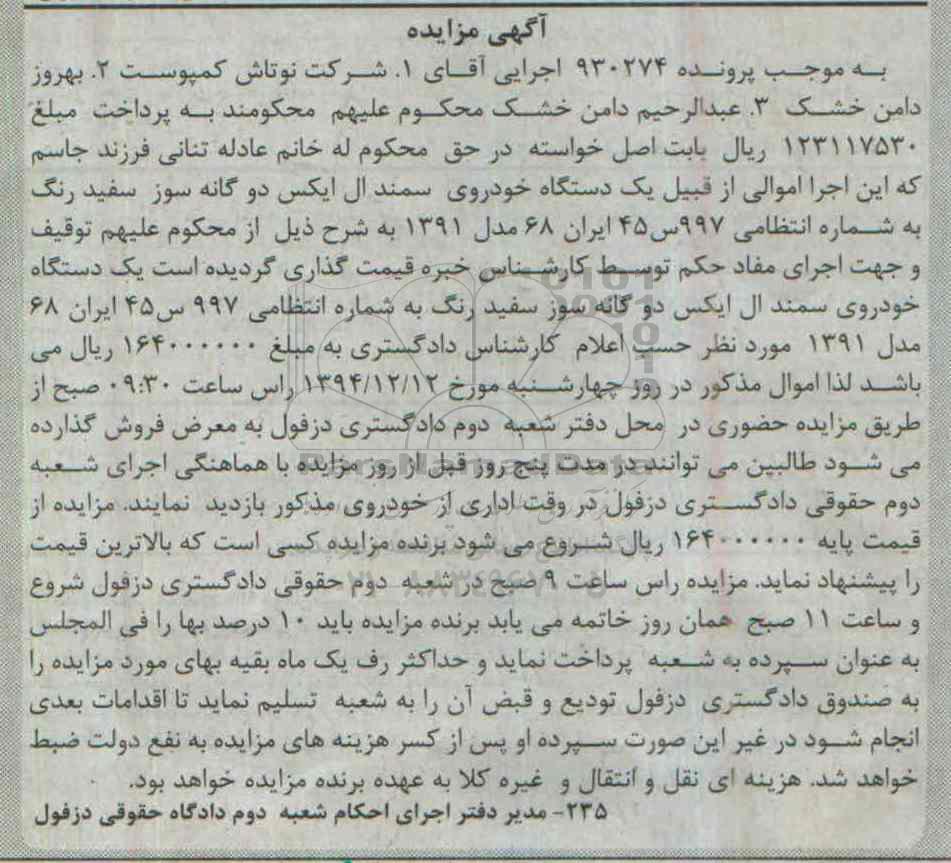 آگهی مزایده
به موجب پرونده ۹۳۰۲۷۴ اجرایی آقای ۱. شرکت نوتاش کمپوست ۲. بهروز
دامن خشک ۳. عبدالرحیم دامن خشک محکوم علیهم محکومند به پرداخت مبلغ
۱۲۳۱۱۷۵۳۰ ریال بابت اصل خواسته در حق محکوم له خانم عادله تنانی فرزند جاسم
که این اجرا اموالی از قبیل یک دستگاه خودروی سمند ال ایکس دو گانه سوز سفید رنگ
به شماره انتظامی ۹۹۷س۴۵ ایران ۶۸ مدل ۱۳۹۱ به شرح ذیل از محکوم علیهم توقیف
و جهت اجرای مفاد حکم توسط کارشناس خبره قیمت گذاری گردیده است یک دستگاه
خودروی سمند ال ایکس دو گانه سوز سفید رنگ به شماره انتظامی ۹۹۷ س۴۵ ایران ۶۸
مدل ۱۳۹۱ مورد نظر حسب اعلام کارشناس دادگستری به مبلغ ۱۶۴۰۰۰۰۰۰ ریال می
باشد لذا اموال مذکور در روز چهارشنبه مورخ ۱۳۹۴/۱۲/۱۲ راس ساعت ۰۹:۳۰ صبح از
طریق مزایده حضوری در محل دفتر شعبه دوم دادگستری دزفول به معرض فروش گذارده
می شود طالبین می توانند در مدت پنج روز قبل از روز مزایده با هماهنگی اجرای شعبه
دوم حقوقی دادگستری دزفول در وقت اداری از خودروی مذکور بازدید نمایند. مزایده از
قیمت پایه ۱۶۴۰۰۰۰۰۰ ریال شروع می شود برنده مزایده کسی است که بالاترین قیمت
را پیشنهاد نماید. مزایده راس ساعت ۹ صبح در شعبه دوم حقوقی دادگستری دزفول شروع
و ساعت ۱۱ صبح همان روز خاتمه می یابد برنده مزایده باید ۱۰ درصد بها را فی المجلس
به عنوان سپرده به شعبه پرداخت نماید و حداکثر رف یک ماه بقیه بهای مورد مزایده را
به صندوق دادگستری دزفول تودیع و قبض آن را به شعبه تسلیم نماید تا اقدامات بعدی
انجام شود در غیر این صورت سپرده او پس از کسر هزینه های مزایده به نفع دولت ضبط
خواهد شد. هزینه ای نقل و انتقال و غیره کلا به عهده برنده مزایده خواهد بود.
۲۳۵- مدیر دفتر اجرای احکام شعبه دوم دادگاه حقوقی دزفول